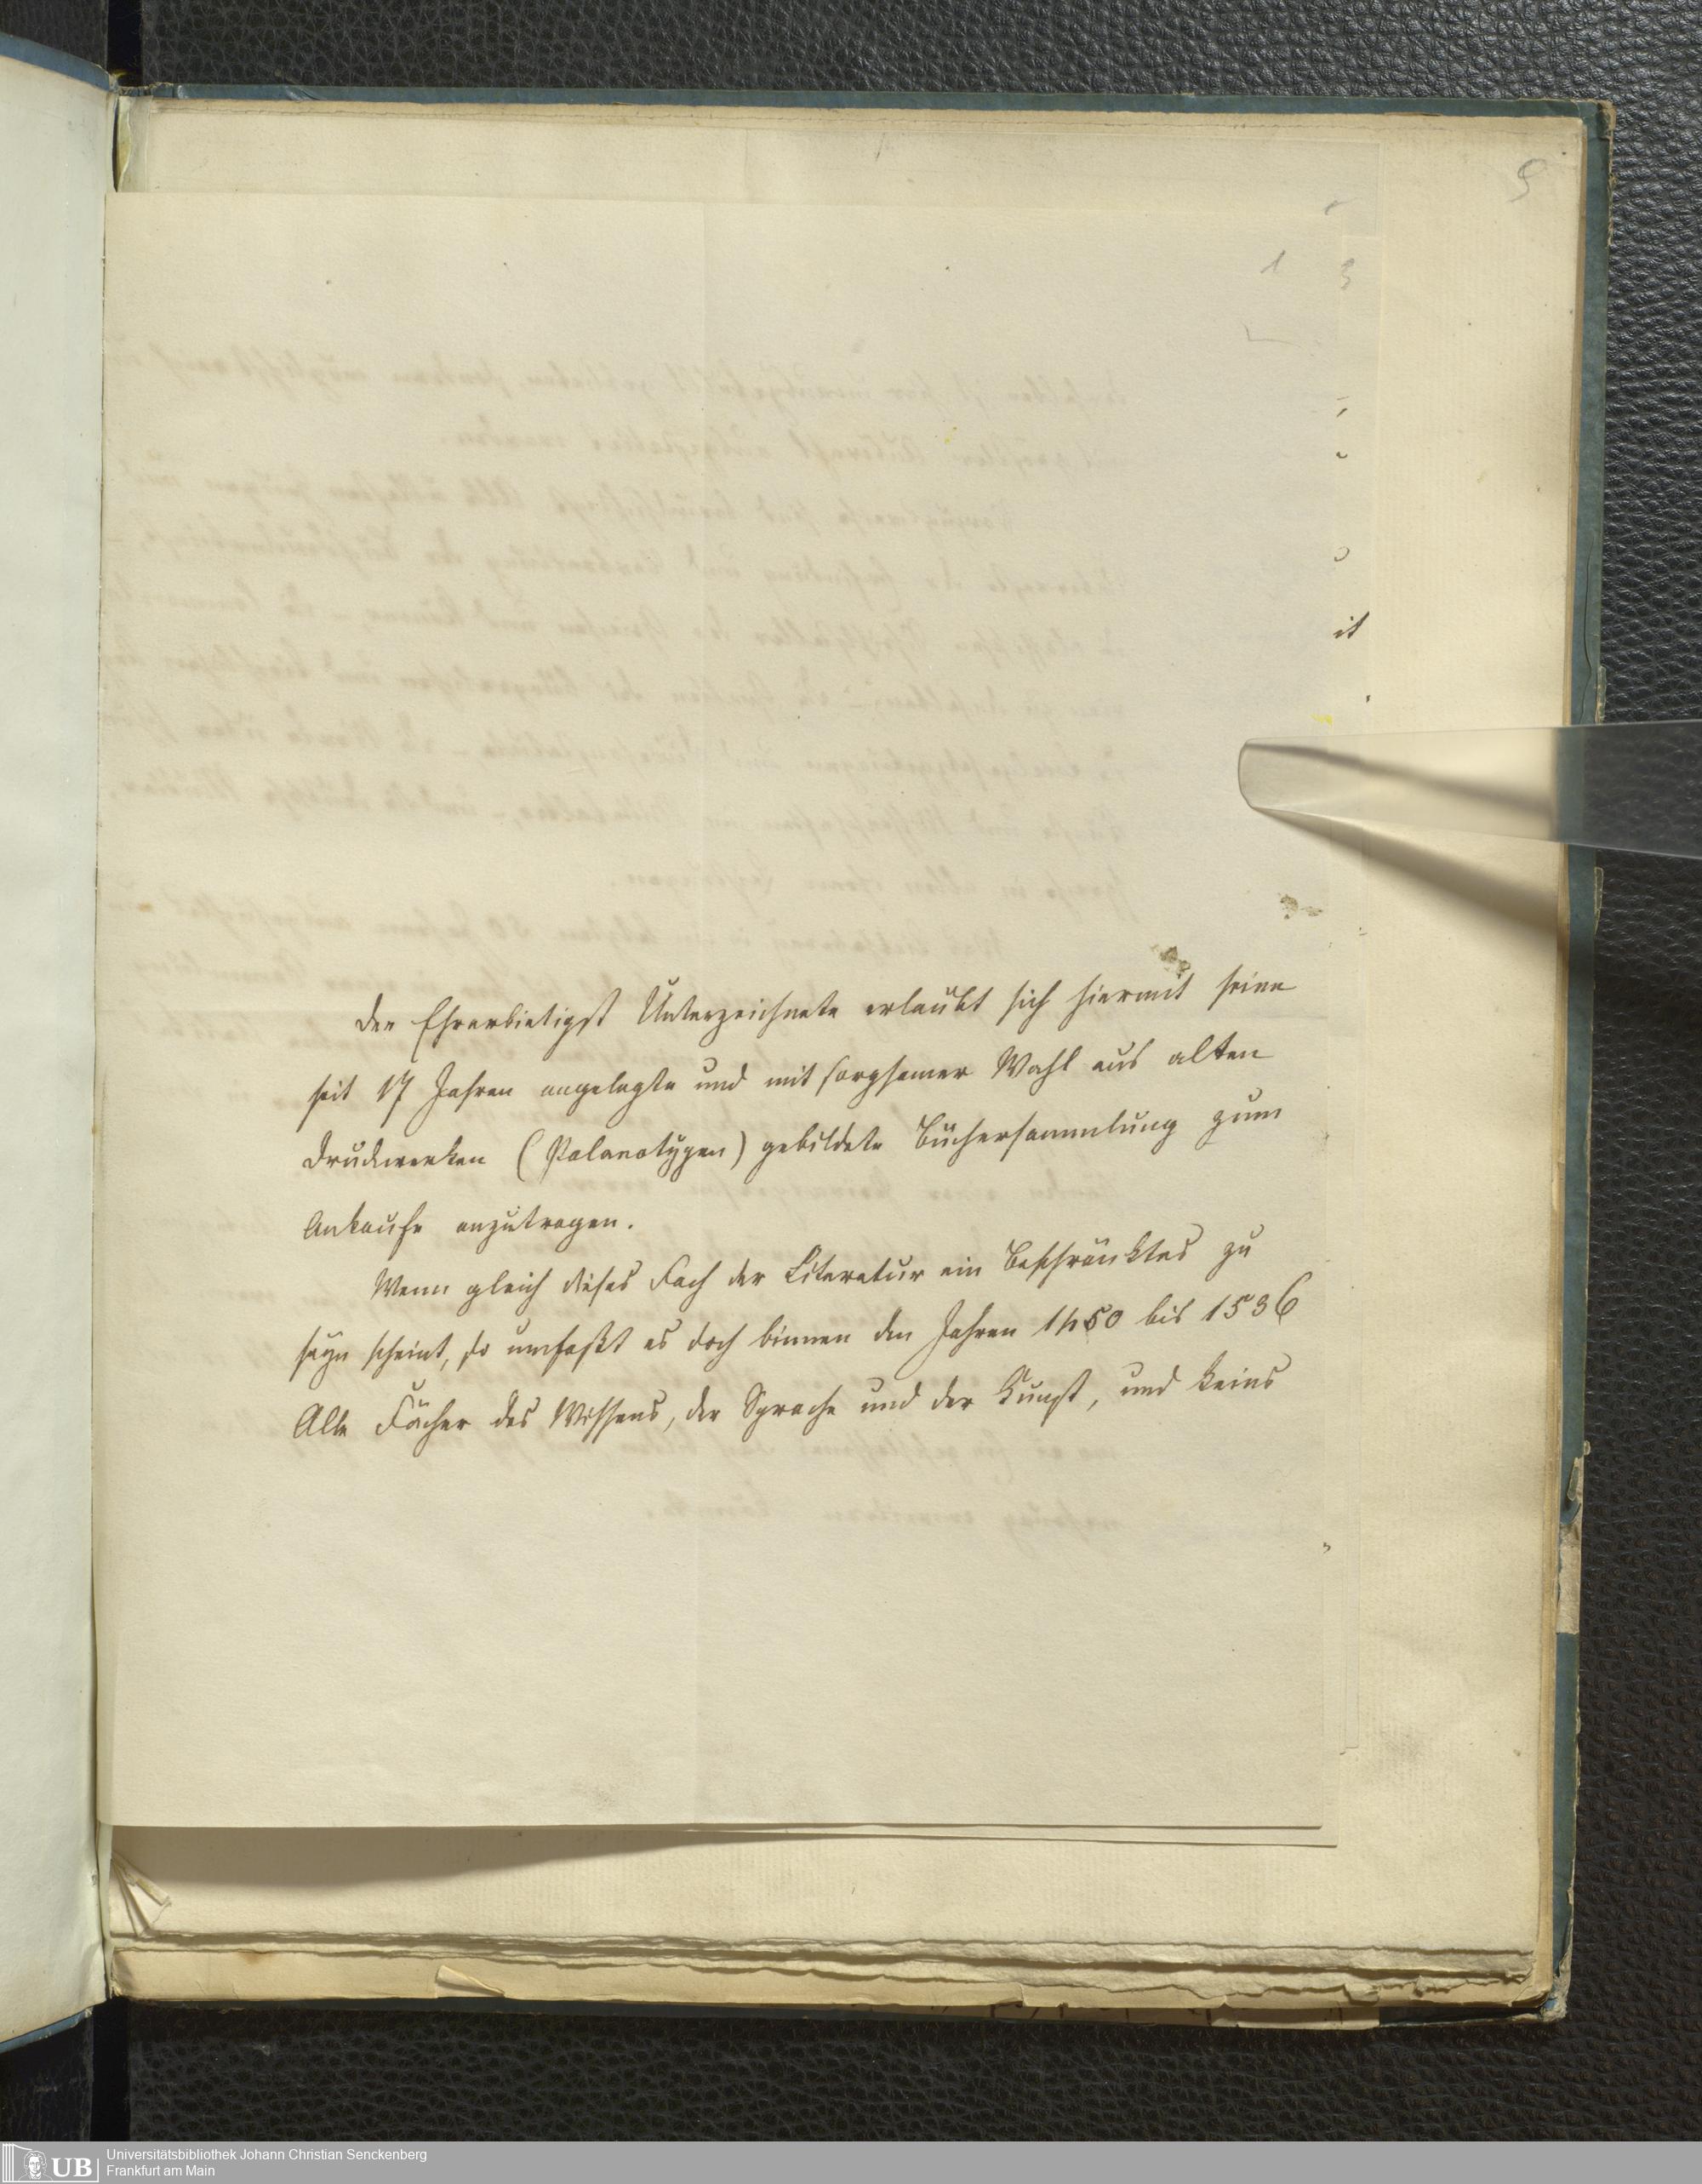 5
1
3
it
Der Ehrerbietigst Unterzeichnete erlaubt sich hiermit seine
seit 17 Jahren angelegte und mit sorgsamer Wahl aus alten
Druckwerken (Palaeotypen) gebildete Büchersammlung zum
Ankaufe anzutragen.
Wenn gleich dieses Fach der Literatur ein Beschränktes zu
seyn scheint, so umfaßt es doch binnen den Jahren 1450 bis 1536
Alle Fächer des Wissens, der Sprache und der Kunst, und keins
UB
Universitätsbibliothek Johann Christian Senckenberg
Frankfurt am Main